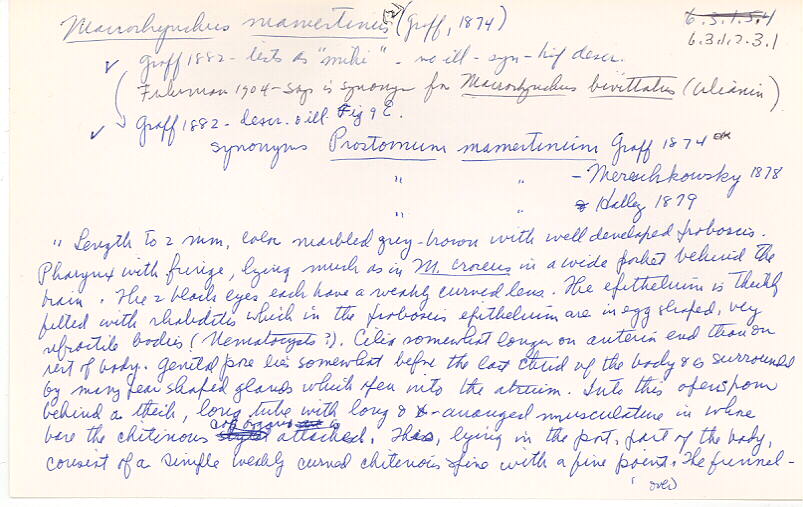 Macrorhynchus mamertinus (Graff, 1874)
6.3.1.5.4
6.3.1.2.3.1
✓ Graff 1882 - lists as "mihi" - no ill - syn - brief descr.
Fuhrman 1904 - says is synonym for Macrorhynchus bivittatus (Ulianin)
✓ Graff 1882 - descr. & ill. Fig 9 E.
synonyms Prostomum mamertinum Graff 1874 ok
" " - Mereschkowsky 1878
" " & Hallez 1879
"Length to 2 mm, color marbled grey-brown with well developed proboscis.
Pharynx with fringe, lying much as in M. croceus in a wide pocket behind the
brain. The 2 black eyes each have a weakly curved lens. The epithelium is thickly
filled with rhabdites which in the proboscis epithelium are in egg shaped, very
refractile bodies (Nematocysts?). Cilia somewhat longer on anterior end than on
rest of body. Genital pore lies somewhat before the last third of the body & is surrounded
by many pear shaped glands which open into the atrium. Into this opens from
behind a thick, long tube with long & -arranged musculature in whose
base the chitinous cop organ is attached. This, lying in the post. part of the body,
consist of a simple weakly curved chitenois spine with a fine point. The funnel-
(over)